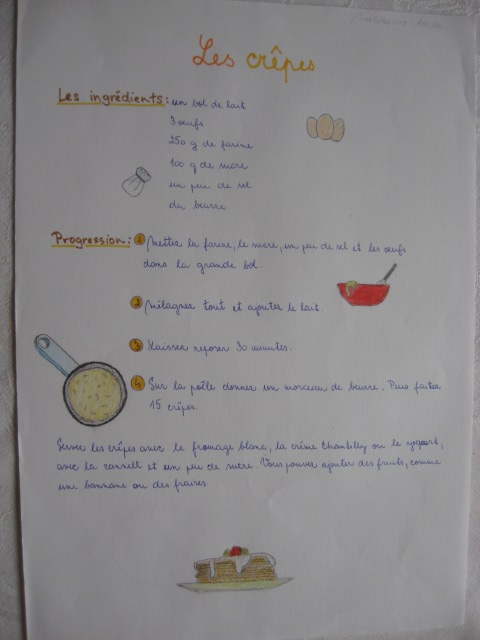 Les crêpes
Les ingrédients: un bol de lait
3 œufs
250 g de farine
100 g de sucre
un peu de sel
du beurre
Progression: 1 Mettez la farine, le sucre, un peu de sel et les œufs
dans la grande bol.
2 Mélagnez tout et ajoutez le lait.
3 Laissez reposer 30 minutes.
4 Sur la poêle donner un morceau de beurre. Puis faites
15 crêpes.
Servez les crêpes avec le fromage blanc, la crème Chantilly ou le yogourt,
avec la cannelle et un peu de sucre. Vous pouvez ajouter des fruits, comme
une bannane ou des fraises.